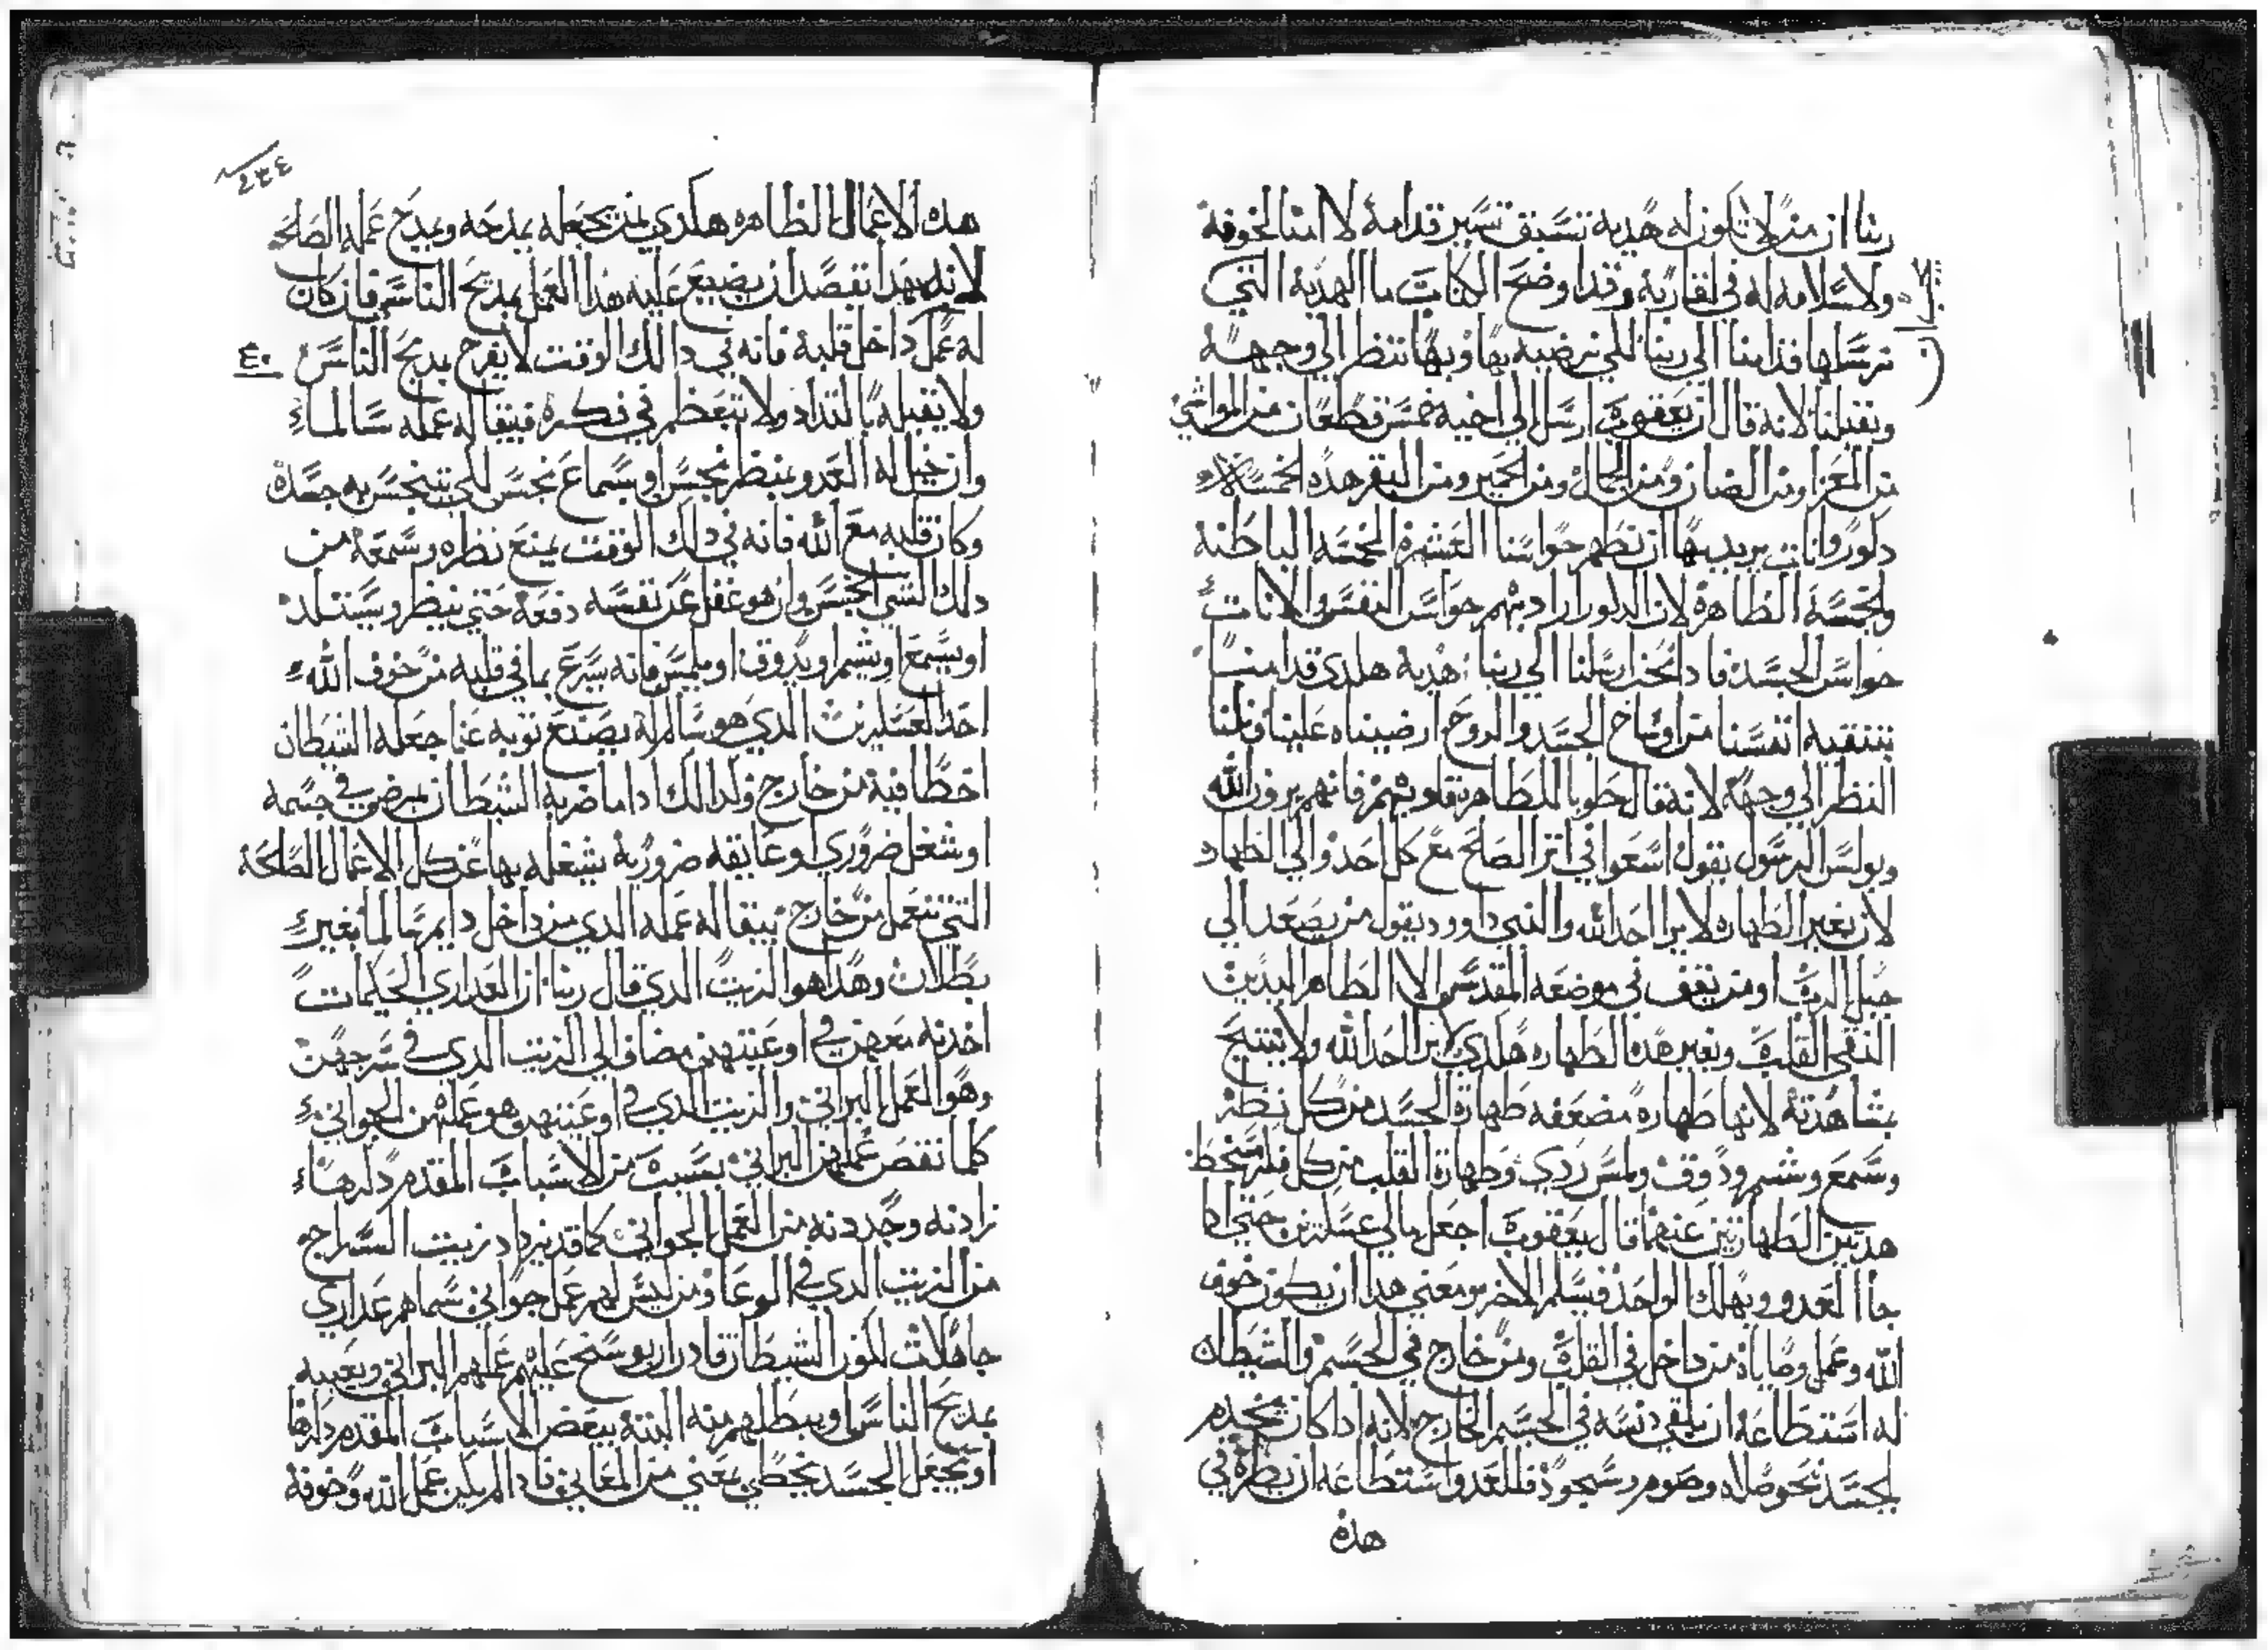 ربنا ان من لا تكون له هديه تسبق تسير قدامه لا امنا لخوفة
ولا سلامه له في لقا ربه وقد اوضح الكتاب ما الهديه التي
نرسلها قدامنا الي ربنا للي نرضيه بها وبها ننظر الي وجهه
ويقبلنا لانه قال ان يعقوب ارسل الي اخيه خمس قطعان من المواشي
من المعز ومن الضان ومن الجمال ومن الحمير ومن البقر هده الخمسة
دكور واناث يريد بها ان نطهر حواسنا العشره الخمسه الباطنه
والخمسه الظاهرة لان الدكور اراد بهم حواس النفس والاناث
حواس الجسد فادا نحن ارسلنا الي ربنا هديه هلدي قدامنا
بتنقيه انفسنا من اوساخ الجسد والروح ارضيناه علينا ونلنا
النظر الي وجهه لانه قال طوبا للطاهره قلوبهم فانهم يرون الله
وبولس الرسول يقول اسعوا في اتر الصلح مع كل احد والي الطهاره
لان بغير الطهاره لا يرا احد الله والنبي داوود يقول من يصعد الي
جبل الرب او من يقف في موضعه المقدس الا الطاهر اليدين
النقي القلب وبغير هده الطهاره هلدي لا يرا احد الله ولا يتنيح
بمشاهدته لانها طهاره مضعفه طهارة الجسد من كل نظر
وسمع وشم ودوق ولمس ردي وطهارة القلب من كل فكر مسخط
هدين الطهارتين عنهما قال يعقوب اجعل مالي عسكرين حتي ادا
جا العدو ويهلك الواحد فيسلم الاخر ومعني هدا ان يكون خوف
الله وعمل وصاياه من داخل في القلب ومن خارج في الجسم والشيطان
له استطاعه ان يلقي دنسه في الجسم الخارج لانه ادا كان يخدم
الجسد نحو صلاه وصوم وسجود فللعدو استطاعه ان يطره في
هده
٢٣٤
هده الاعمال الظاهره هلدي لمن يجعله يمدحه ويمدح عمله الصالحه
لانه بهدا يقصد ان يضيع عليه هدا العمل بمديح الناس فان كان
له عمل داخل قلبه فانه في دالك الوقت لا يفرح بمديح الناس
٤٠
ولا يقبله بالتداد ولا يتعظم في فكره فيبقا له عمله سالما
وان خيل له العدو بمنظر نجس او سماع نجس للي يتنجس به جسده
وكان قلبه مع الله فانه في دلك الوقت يمنع نظره وسمعه من
دلك الشي النجس وان هو غفل عن نفسه دفعه حتي ينظر ويستلد
او يسمع او يشم او يدوق او يلمس فانه يسرع بما في قلبه من خوف الله
احد العسكرين الدي هو سالم له يصنع توبه عما جعله الشيطان
اخطا فيه من خارج ولدالك ادا ما ضربه الشيطان بمرض في جسمه
او شغل ضروري او عايقه ضروريه يشغله بها عن كل الاعمال الصالحه
التي تنعمل من خارج يبقا له عمله الدي من داخل دايم سالما بغير
بطلان وهدا هو الزيت الدي قال ربنا ان العداري الحكيمات
اخدنه معهن في اوعيتهن مضاف الي الزيت الدي في سرجهن
وهو العمل البراني والزيت الدي في اوعيتهن هو عملهن الجواني
كلما نقص عملهن البراني بسبب من الاسباب المقدم دكرها
زادنه وجددنه من العمل الجواني كما قد يزداد زيت السراج
من الزيت الدي في الوعا ومن ليس لهم عمل جواني سماهم عداري
جاهلات لكون الشيطان قادر ان يوسخ عليهم عملهم البراني ويعيبه
بمديح الناس او يبطلهم منه البتة ببعض الاسباب المقدم دكرها
او يجعل الجسد يخطي بمعني من المعاني فادا لم يكن عمل الله وخوفه